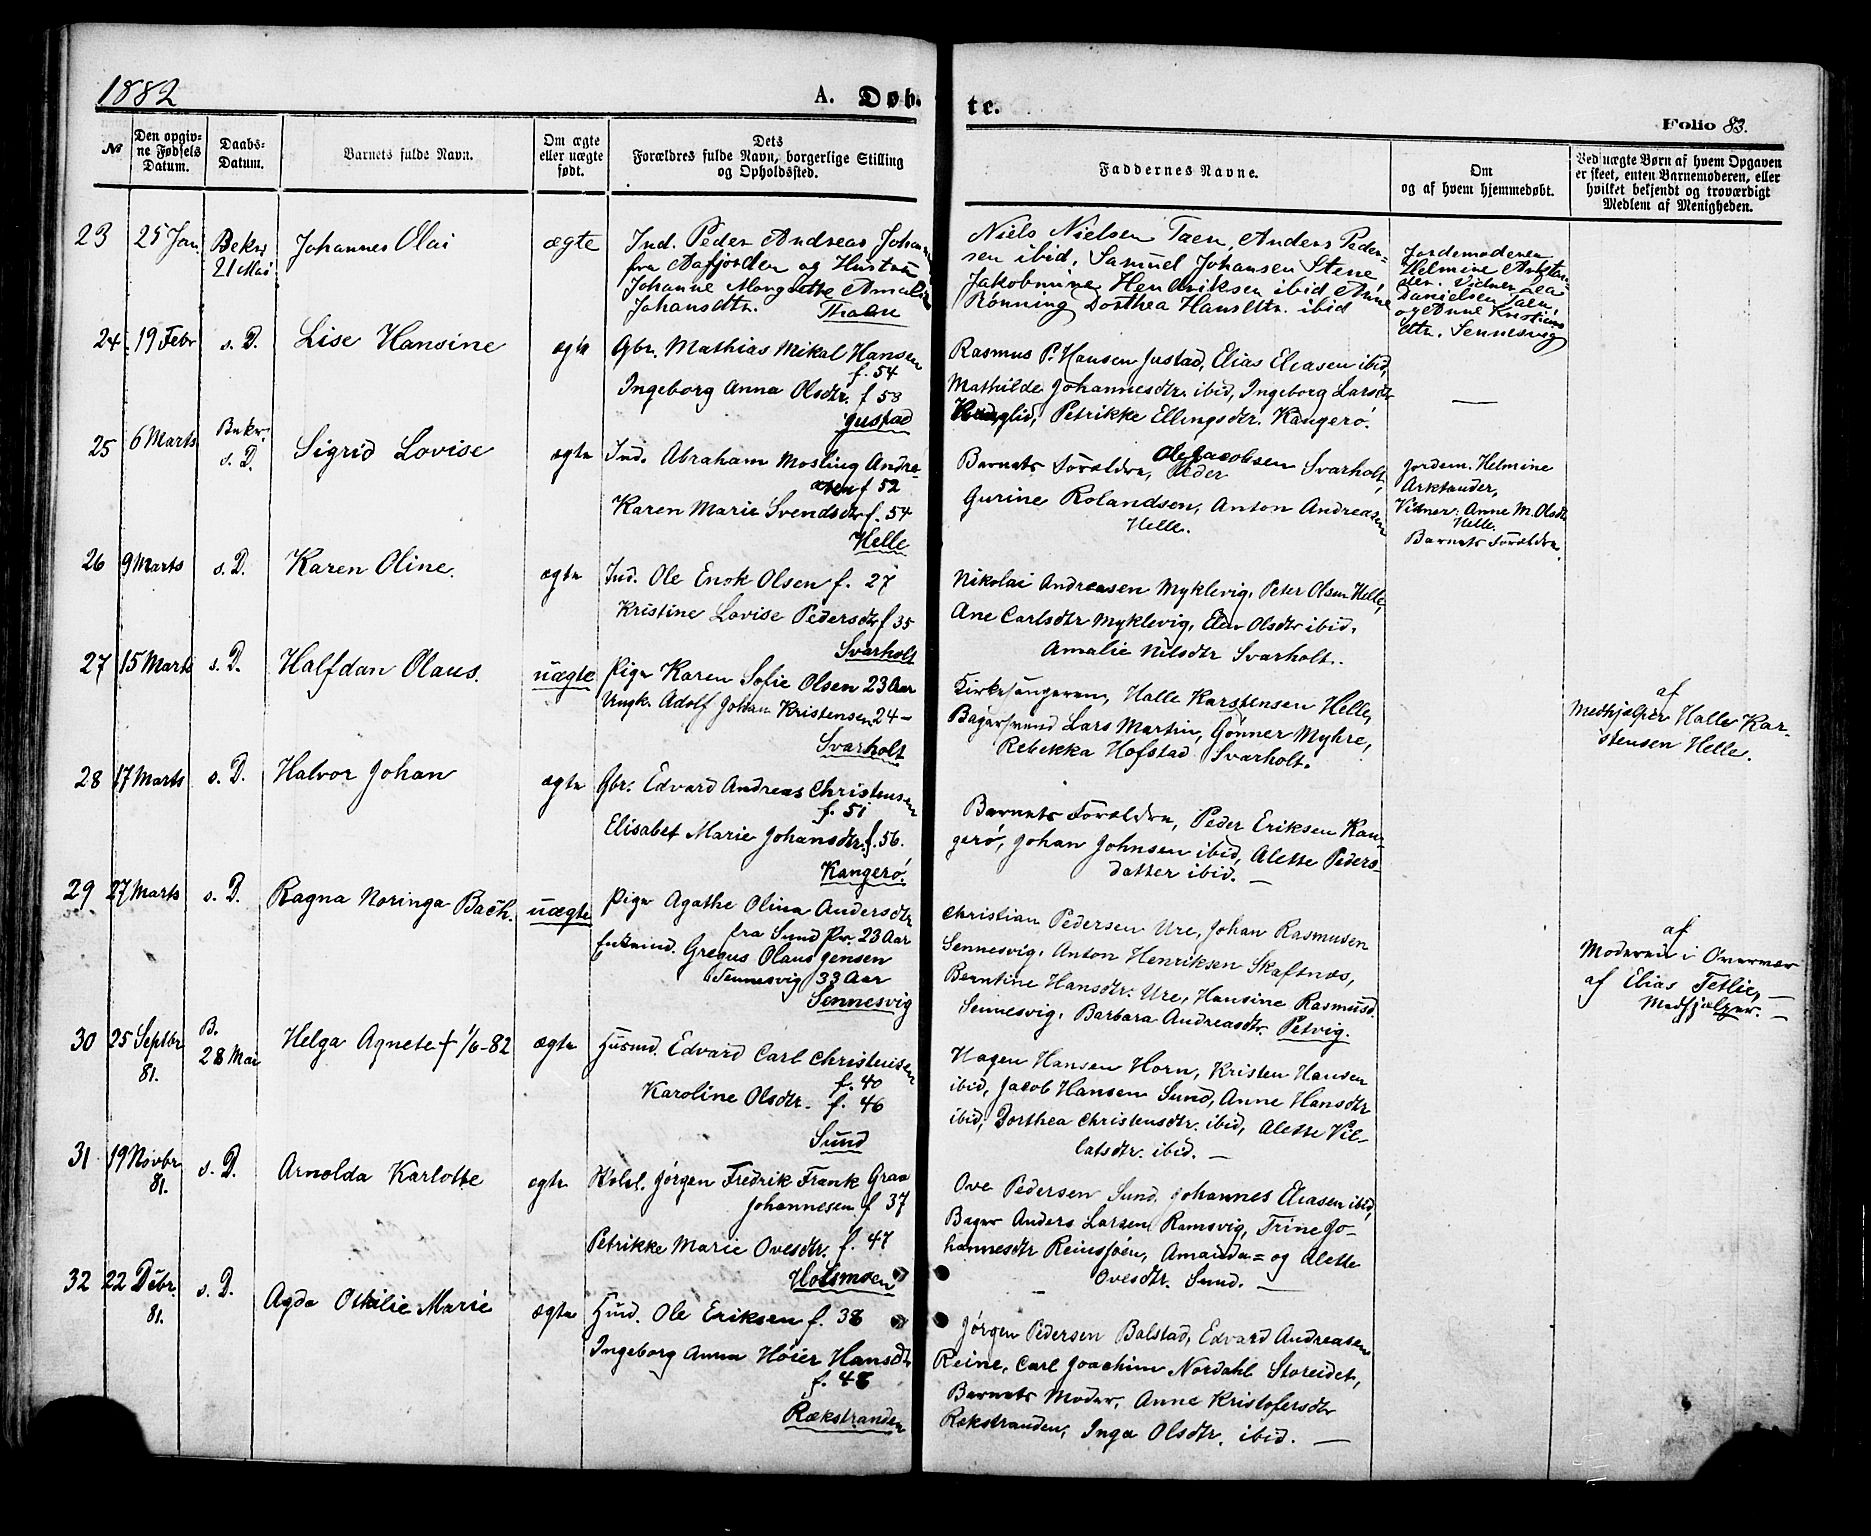 1882
A. Døb-
te.
Folio 83.
№
Den opgiv-
ne Fødsels
Datum.
Daabs-
Datum.
Barnets fulde Navn.
Om ægte
eller uægte
født.
Dets
Forældres fulde Navn, borgerlige Stilling
og Opholdssted.
Faddernes Navne.
Om
og af hvem hjemmedøbt.
Ved uægte Børn af hvem Opgaven
er skeet, enten Barnemoderen, eller
hvilket bekjendt og troværdigt
Medlem af Menigheden.
23
25 Jan.
Bekr.
21 Mai
Johannes Olai
ægte
Ind. Peder Andreas Johan
fra Aafjorden og Hustru
Johanne Margrethe Amalie
Johansdtr.
Niels Nielsen Taen, Anders Peder-
sen ibid, Samuel Johansen Stene
Jakobmine Hendriksen ibid Anne
Rønning Dorthea Hansdtr. ibid
Jordemoderen
Helmine Arktan
der. Vidner Lea
Danielsen Taen
og Anne Kristians
dtr. Sennesvig
24
19 Febr
s. D.
Lise Hansine
ægte
Gbr. Mathias Mikal Hansen
f. 54
Ingeborg Anna Olsdtr. f 58
Justad
Rasmus P. Hansen Justad, Elias Eliasen ibid,
Mathilde Johannesdtr. ibid, Ingeborg Larsdtr
Petrikke Ellingsdtr. Kangerø.
25
6 Marts
Bekr.
s. D.
Sigrid Lovise
ægte
Ind. Abraham Mosling Andre-
asen f 52
Karen Marie Svendsdtr f. 54
Helle
Barnets Forældre, Ole Jacobsen Svarholt,
Gurine Rolandsen, Anton Andreasen
Helle.
Jordem. Helmine
Arktander,
Vidner: Anne M. Olsdtr
Helle.
Barnets Forældre.
26
9 Marts
s. D.
Karen Oline.
ægte
Ind. Ole Enok Olsen f. 27
Kristine Lovise Pedersdtr f 35
Svarholt
Nikolai Andreasen Myklevig, Peter Olsen Helle,
Ane Carlsdtr Myklevig, Elen Olsdtr ibid,
Amalie Nilsdtr Svarholt.
27
15 Marts
s. D.
Halfdan Olaus.
uægte
Pige Karen Sofie Olsen 23 Aar
Ungk. Adolf Johan Kristensen 24 –
Svarholt
Kirkesangeren, Halle Karstensen Helle,
Bagersvend Lars Martin, Gønner Myhre,
Rebekka Hofstad Svarholt.
af
Medhjælper Halle Kar-
stensen Helle.
28
17 Marts
s. D.
Halvor Johan
ægte
Gbr. Edvard Andreas Christensen
f. 51
Elisabet Marie Johansdtr. f. 56.
Kangerø.
Barnets Forældre, Peder Eriksen Kan-
gerø, Johan Johnsen ibid, Alette Peders-
datter ibid. –
29
27 Marts
s. D.
Ragna Noringa Bach.
uægte
Pige Agathe Olina Andersdtr
fra Sund Pr. 23 Aar
Enkemd. Gregus Olaus Jensen
Sennesvig 33 Aar
Sennesvig
Christian Pedersen Ure, Johan Rasmusen
Sennesvig, Anton Henriksen Skaftnæs,
Berntine Hansdtr. Ure, Hansine Rasmusd.
Sennesvig, Barbara Andreasdtr. Petvig.
af
Moderen i Overvær
af Elias Tetlie, –
Medhjælper. –
30
25 Septbr
81.
B.
28 Mai
Helga Agnete † 1/6-82
ægte
Husmd. Edvard Carl Christensen
f. 40
Karoline Olsdtr. f. 46
Sund
Hagen Hansen Horn, Kristen Hansen
ibid, Jacob Hansen Sund, Anne Hansdtr
ibid, Dorthea Christensdtr. ibid, Alette Vil-
latsdtr. ibid. –
31
19 Novbr
81.
s. D.
Arnolda Karlotte
ægte
Jørgen Fredrik Frank Graa
Johannesen f 37
Petrikke Marie Ovesdtr. f. 47
Holsmoen
Ove Pedersen Sund, Johannes Eliasen ibid,
Bager Anders Larsen Ramsvig, Trine Jo-
hannesdtr Reinsjøen, Amanda = og Alette
Ovesdtr. Sund. –
32
22 Debr
81.
s. D.
Agda Othilie Marie
ægte
Husd. Ole Eriksen f. 38
Ingeborg Anna Høier Hansdtr
f. 48
Rækstranden
Jørgen Pedersen Balstad, Edvard Andreasen
Reine, Carl Joachim Nordahl Storeidet,
Barnets Moder, Anne Kristofersdtr
Rækstranden, Inga Olsdtr. ibid. –